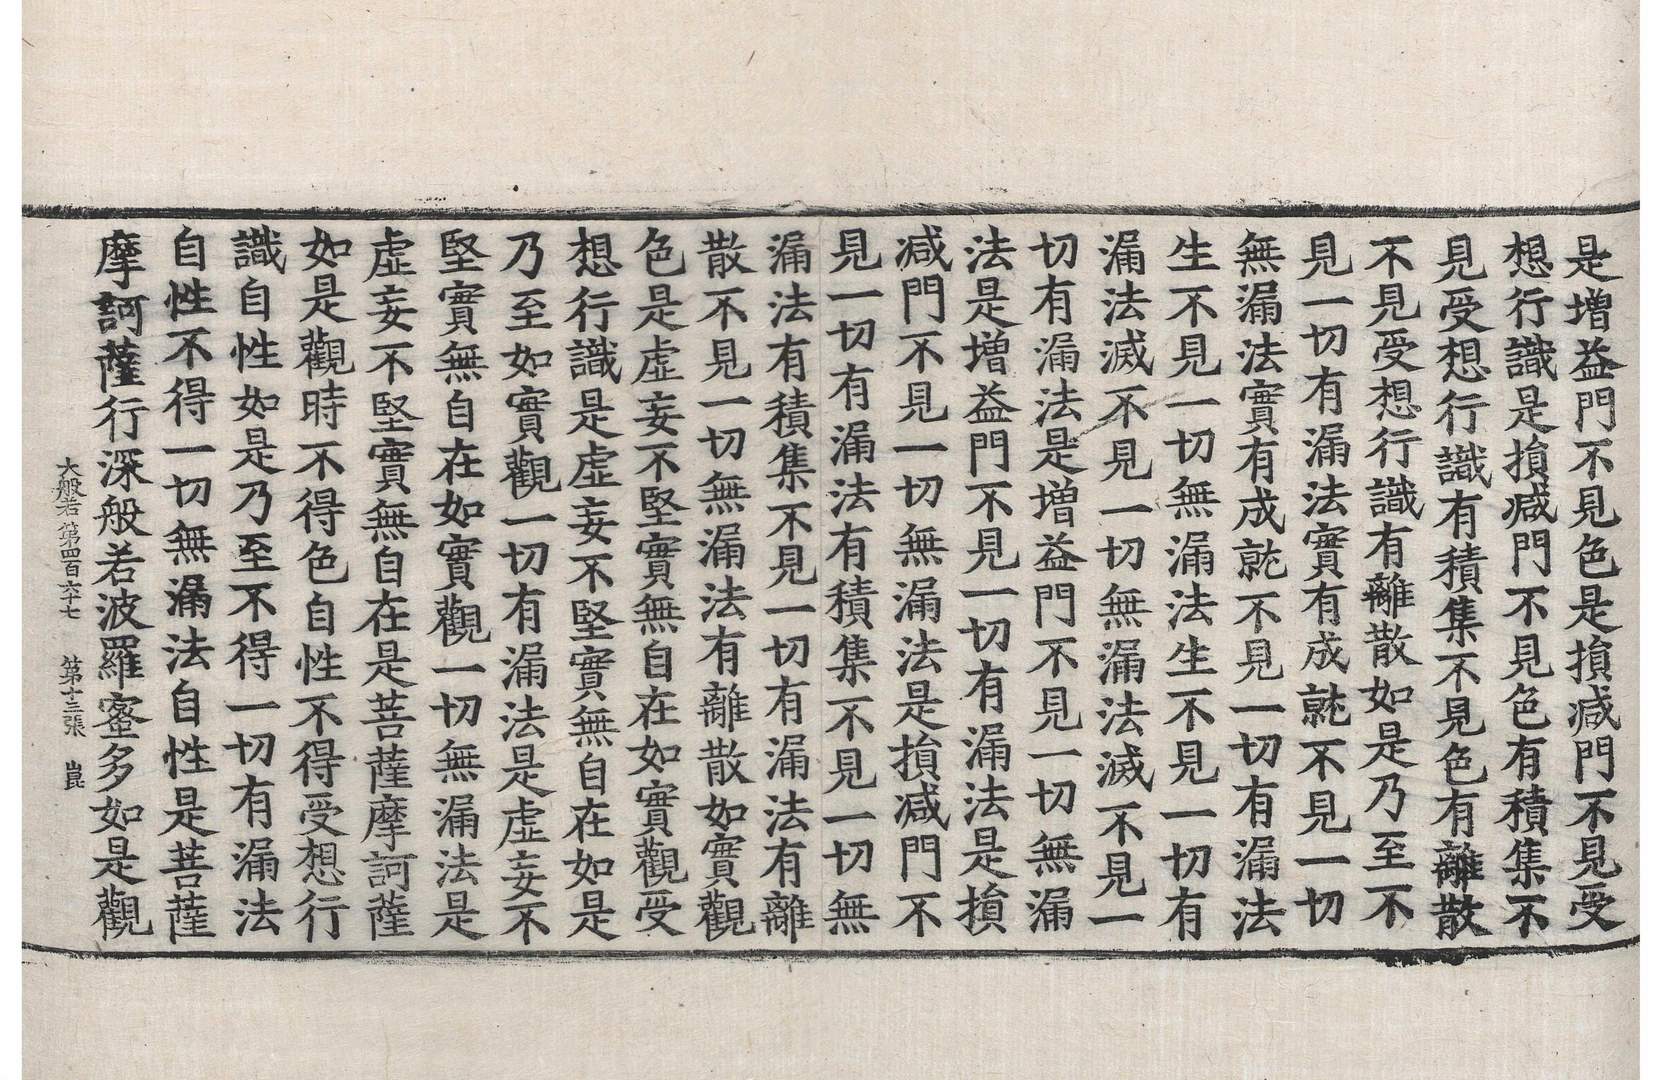 是增益門不見色是損减門不見受
想行識是損减門不見色有積集不
見受想行識有積集不見色有離散
不見受想行識有離散如是乃至不
見一切有漏法實有成就不見一切
無漏法實有成就不見一切有漏法
生不見一切無漏法生不見一切有
漏法滅不見一切無漏法滅不見一
切有漏法是增益門不見一切無漏
法是增益門不見一切有漏法是損
减門不見一切無漏法是損减門不
見一切有漏法有積集不見一切無
漏法有積集不見一切有漏法有離
散不見一切無漏法有離散如實觀
色是虛妄不堅實無自在如實觀受
想行識是虛妄不堅實無自在如是
乃至如實觀一切有漏法是虛妄不
堅實無自在如實觀一切無漏法是
虛妄不堅實無自在是菩薩摩訶薩
如是觀時不得色自性不得受想行
識自性如是乃至不得一切有漏法
自性不得一切無漏法自性是菩薩
摩訶薩行深般若波羅蜜多如是觀
大般若第四百六十七 第十三張 崑